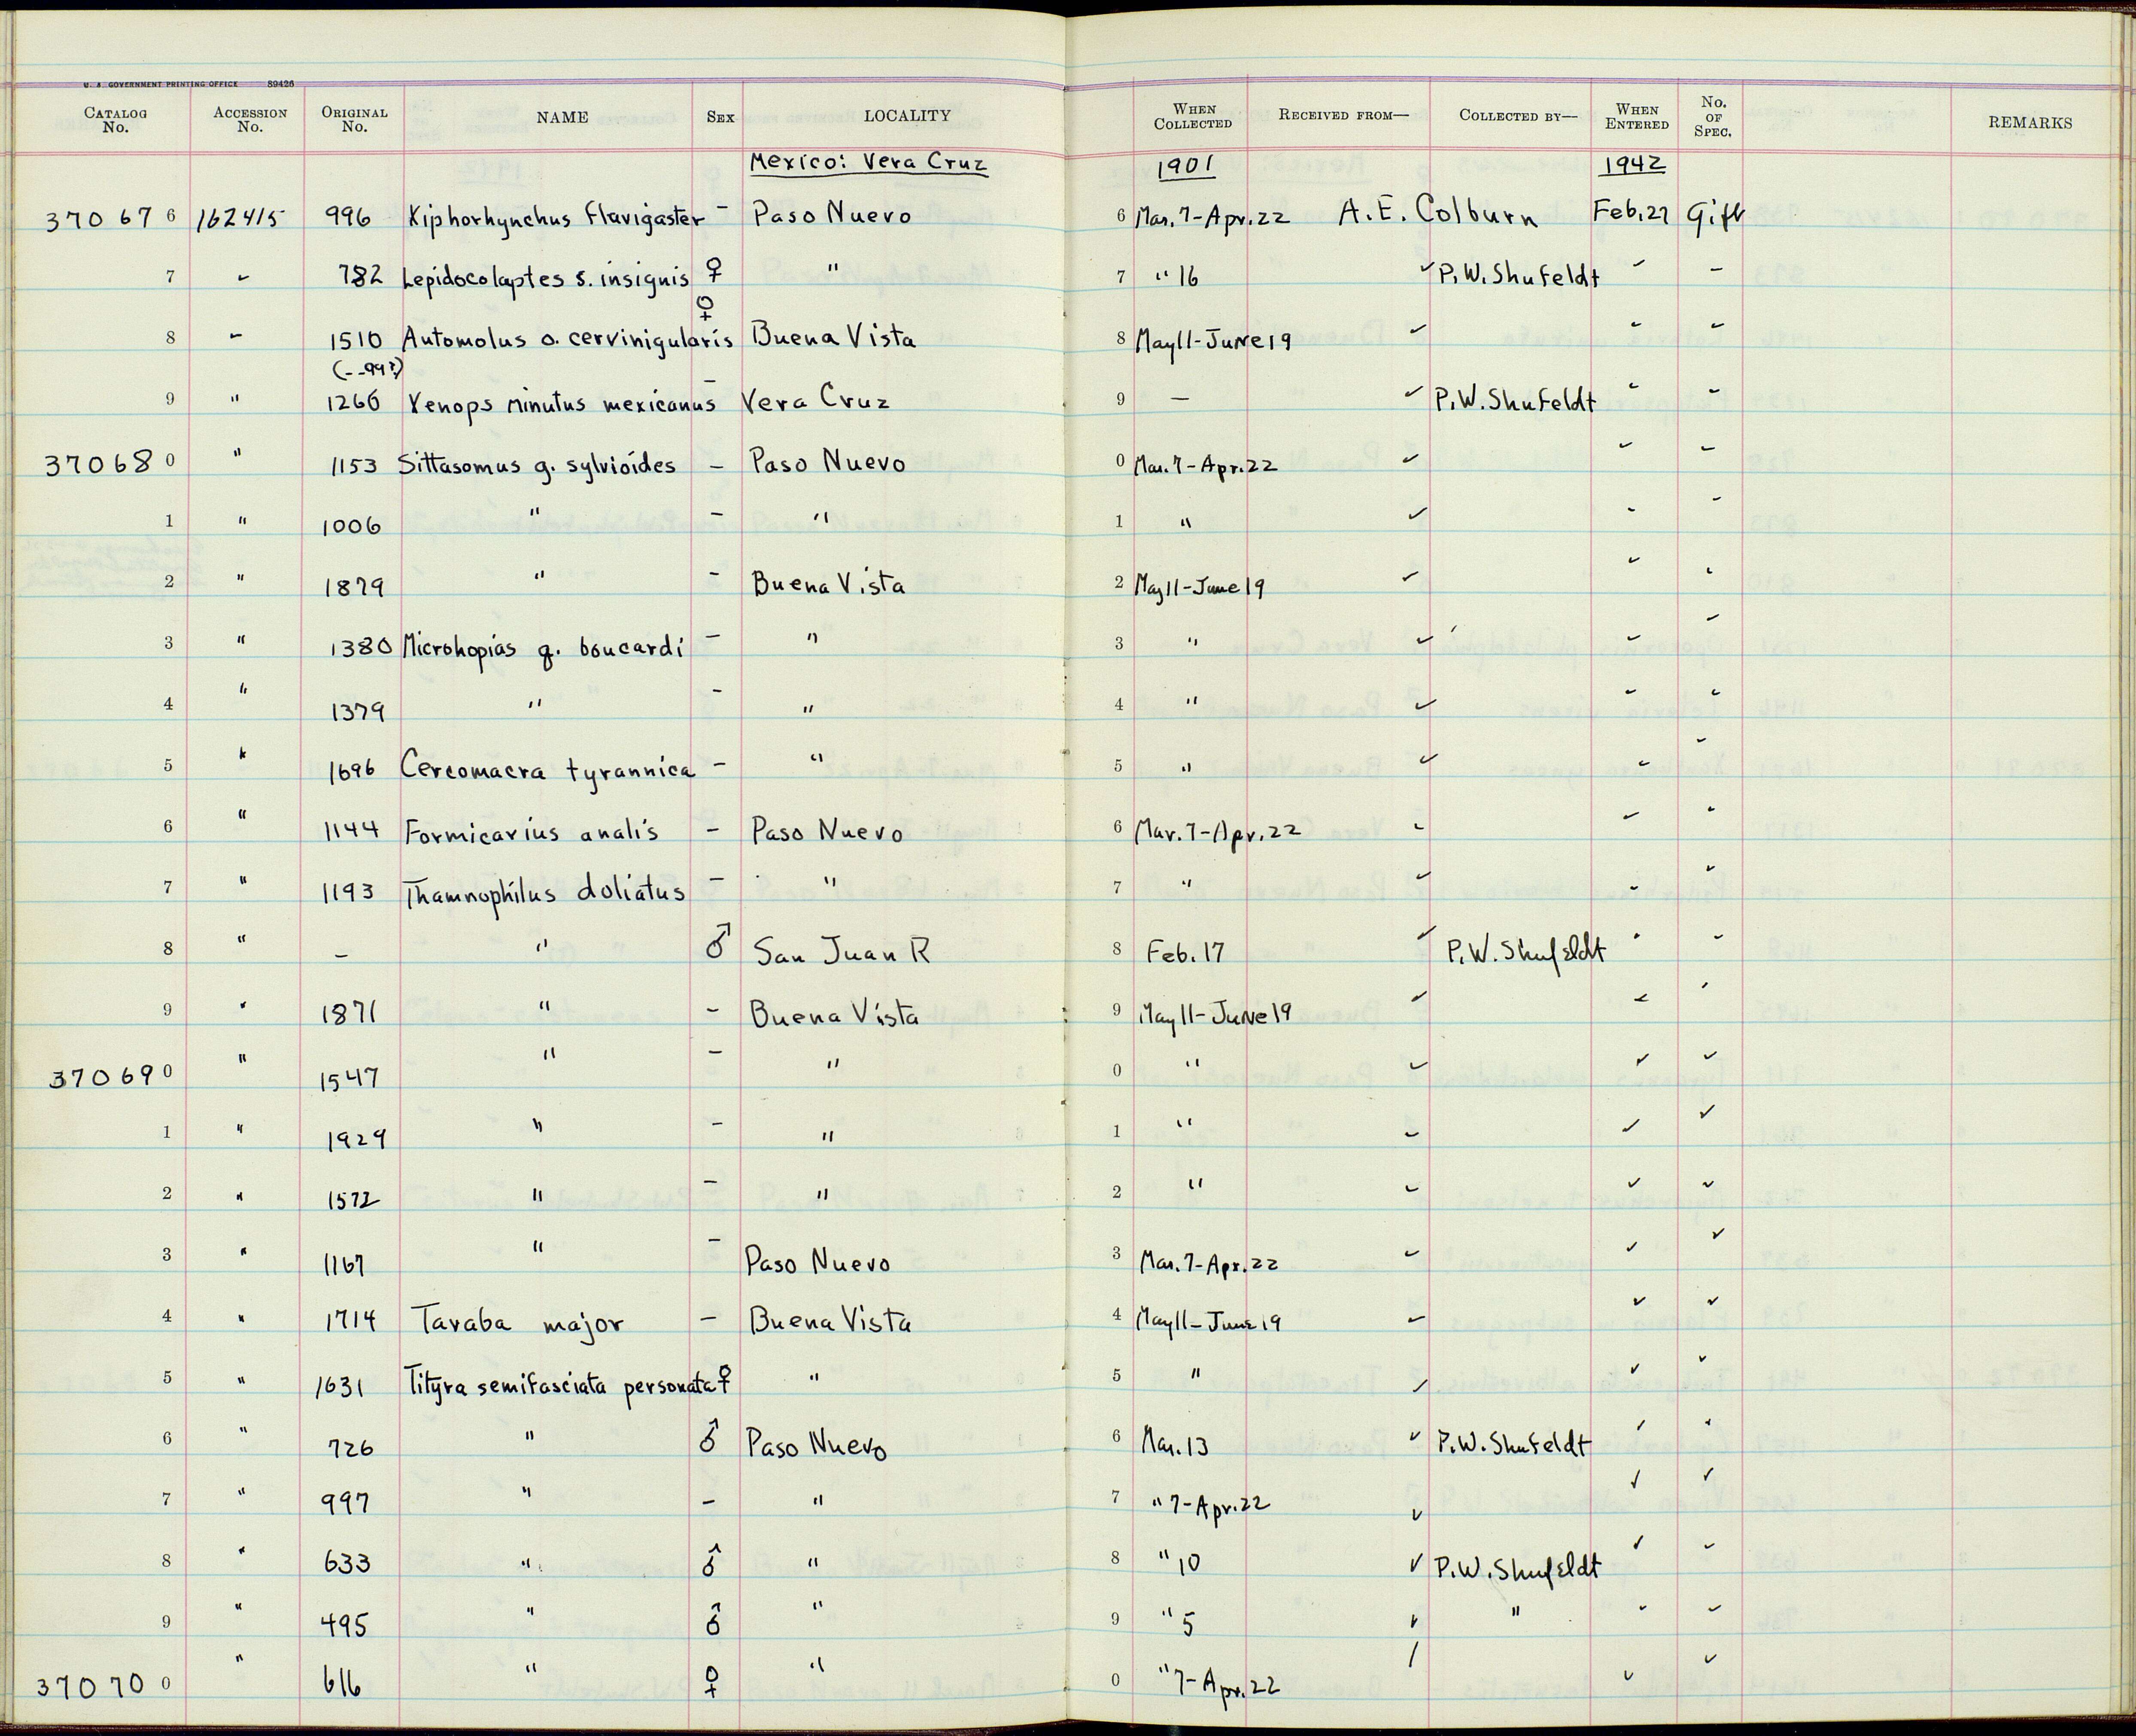 U. S. GOVERNMENT PRINTING OFFICE 89426
CATALOG No. ACCESSION No. ORIGINAL No. NAME SEX LOCALITY WHEN COLLECTED RECEIVED FROM— COLLECTED BY— WHEN ENTERED No. OF SPEC. REMARKS
Mexico: Vera Cruz 1901 1942
370676 162415 996 Xiphorhynchus flavigaster - Paso Nuevo 6 Mar. 7-Apr. 22 A. E. Colburn Feb. 27 Gift
7 " 782 Lepidocolaptes s. insignis ♀ " 7 " 16 ✓ P. W. Shufeldt " "
8 " 1510 Automolus o. cervinigularis ♀ Buena Vista 8 May 11-June 19 ✓ " "
(--99?)
9 " 1266 Xenops minutus mexicanus - Vera Cruz 9 — ✓ P. W. Shufeldt " "
370680 " 1153 Sittasomus g. sylvioides - Paso Nuevo 0 Mar. 7-Apr. 22 ✓ " "
1 " 1006 " - " 1 " ✓ " "
2 " 1879 " - Buena Vista 2 May 11-June 19 ✓ " "
3 " 1380 Microhopias q. boucardi - " 3 " ✓ " "
4 " 1379 " - " 4 " ✓ " "
5 " 1696 Cercomacra tyrannica - " 5 " ✓ " "
6 " 1144 Formicarius analis - Paso Nuevo 6 Mar. 7-Apr. 22 ✓ " "
7 " 1193 Thamnophilus doliatus - " 7 " ✓ " "
8 " - " ♂ San Juan R 8 Feb. 17 ✓ P. W. Shufeldt " "
9 " 1871 " - Buena Vista 9 May 11-June 19 ✓ " "
370690 " 1547 " - " 0 " ✓ ✓ ✓
1 " 1929 " - " 1 " ✓ ✓ ✓
2 " 1572 " - " 2 " ✓ ✓ ✓
3 " 1167 " - Paso Nuevo 3 Mar. 7-Apr. 22 ✓ ✓ ✓
4 " 1714 Taraba major - Buena Vista 4 May 11-June 19 ✓ ✓ ✓
5 " 1631 Tityra semifasciata personata ♀ " 5 " ✓ ✓ ✓
6 " 726 " ♂ Paso Nuevo 6 Mar. 13 ✓ P. W. Shufeldt ✓ ✓
7 " 997 " - " 7 " 7-Apr. 22 ✓ ✓ ✓
8 " 633 " ♂ " 8 " 10 ✓ P. W. Shufeldt ✓ ✓
9 " 495 " ♂ " 9 " 5 ✓ " ✓ ✓
370700 " 616 " ♀ " 0 " 7-Apr. 22 / ✓ ✓